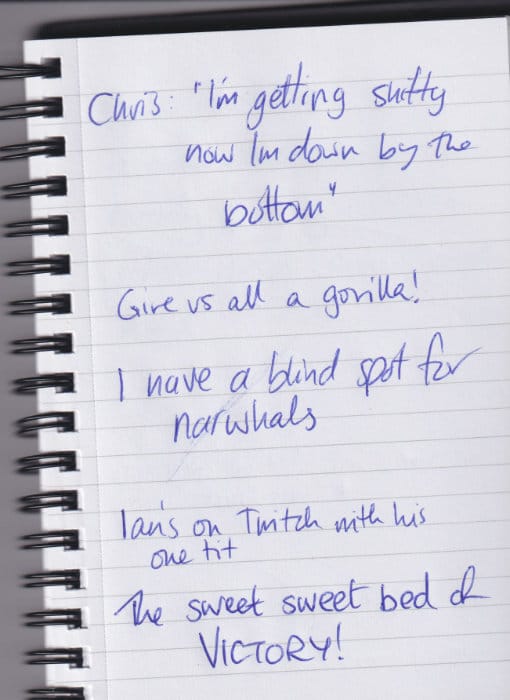 Chris: "I'm getting shitty
now I'm down by the
bottom"
Give us all a gorilla!
I have a blind spot for
narwhals
Ian's on Twitch with his
one tit
The sweet sweet bed of
VICTORY!